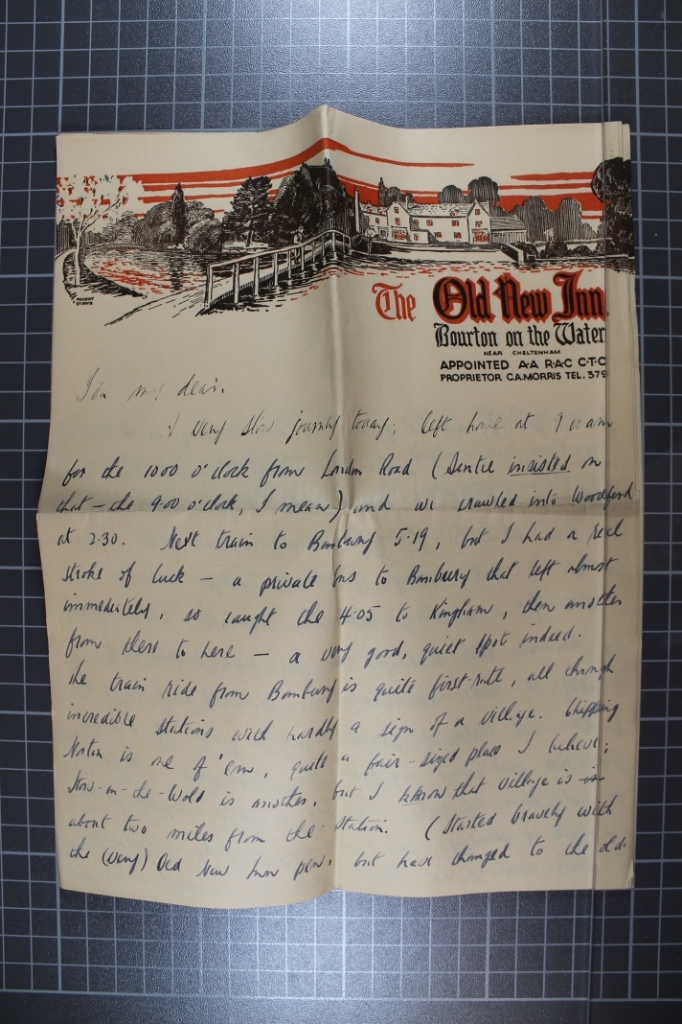 The Old New Inn
Bourton on the Water
NEAR CHELTENHAM
APPOINTED A·A R·A·C C·T·C
PROPRIETOR C.A.MORRIS TEL. 379
Ida my dear,
A very slow journey today; left home at 9 00 am
for the 1000 o'clock from London Road (Auntie insisted on
that — the 9.00 o'clock, I mean) and we crawled into Woodford
at 2.30. Next train to Banbury 5.19, but I had a real
stroke of luck — a private bus to Banbury that left almost
immediately, so caught the 4.05 to Kingham, then another
from there to here — a very good, quiet spot indeed.
The train ride from Banbury is quite first-rate, all through
incredible stations with hardly a sign of a village. Chipping
Norton is one of 'em, quite a fair-sized place I believe;
Stow-on-the-Wold is another, but I know that village is is
about two miles from the station. (Started bravely with
the (very) Old New Inn pen, but have changed to the old